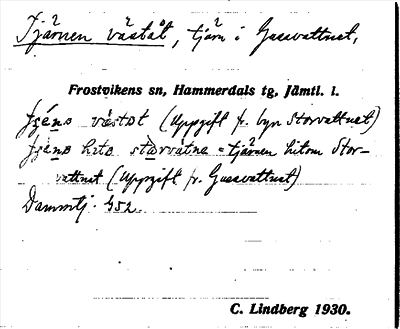 Tjärnen väståt, tjärn i Gussvattnet,
Frostvikens sn, Hammerdals tg, Jämtl. l.
västot (Uppgift fr. byn Storvattnet)
hito storvatna = tjärnen hitom Stor-
vattnet (Uppgift fr. Gussvattnet)
Dammtj. 452.
C. Lindberg 1930.